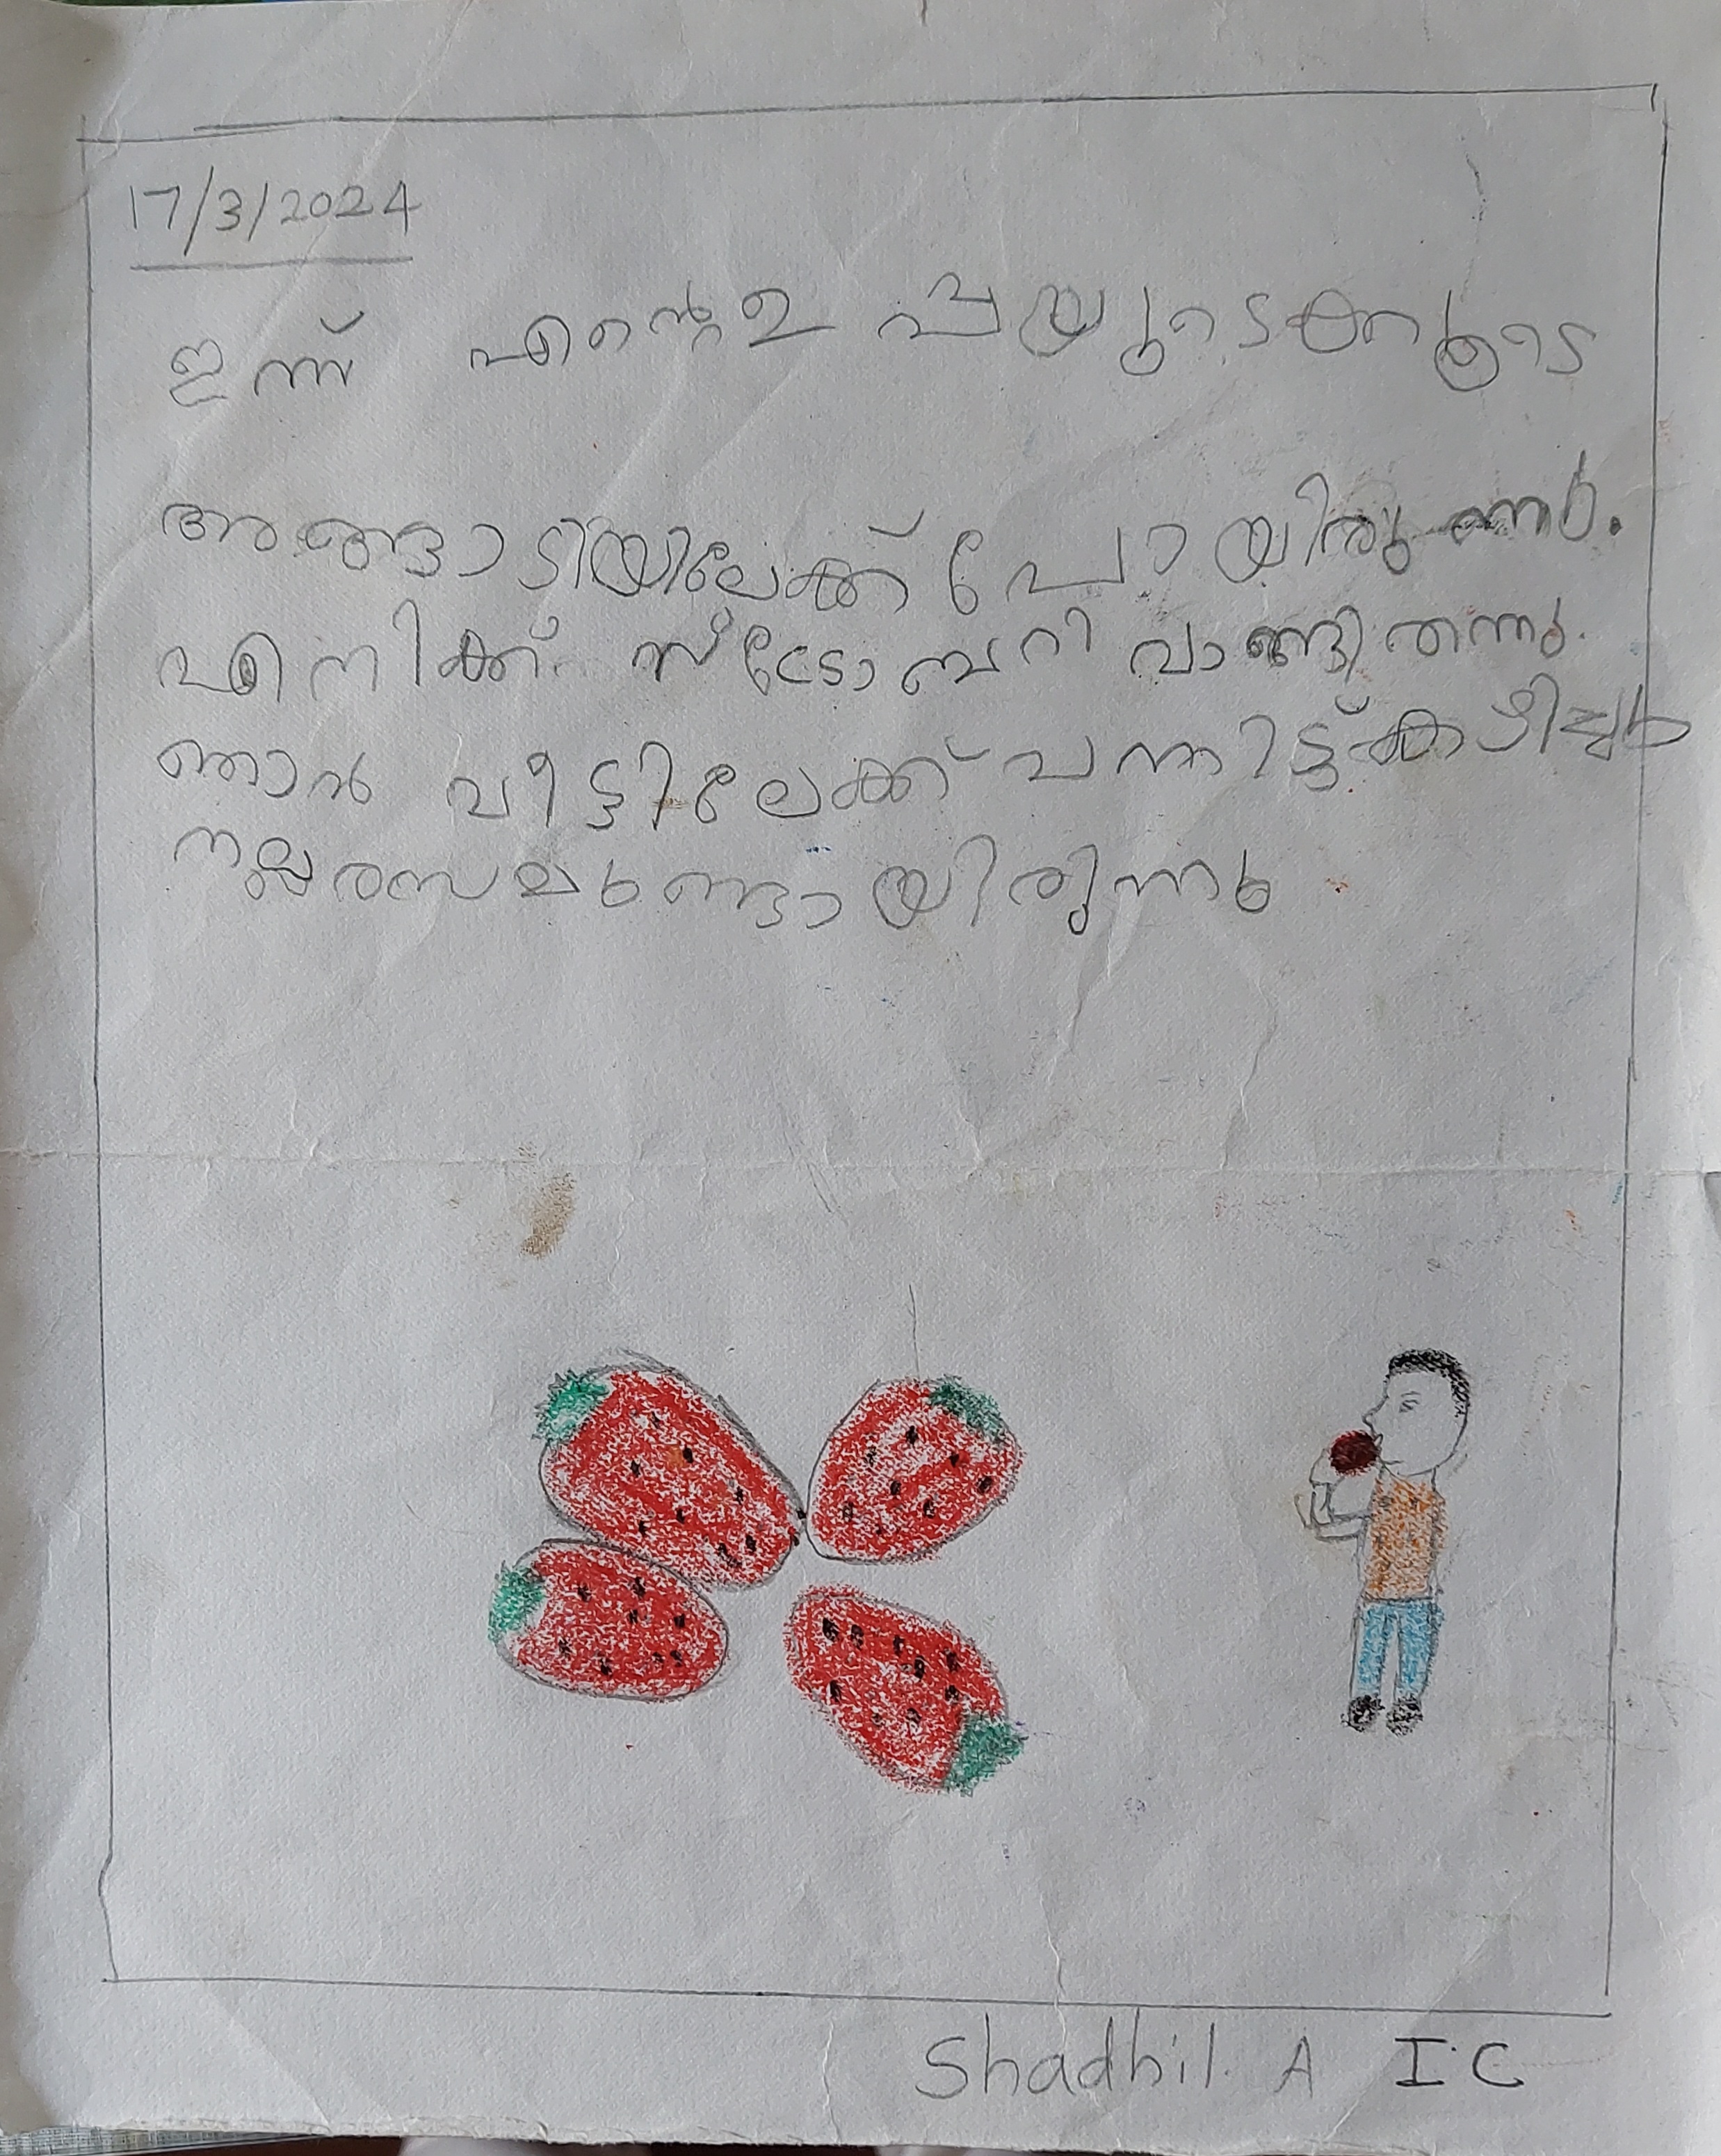 17/3/2024
ഇന്ന് എന്റെ ഉപ്പയുടെകൂടെ
അങ്ങാടിയിലേക്ക് പോയിരുന്നു.
എനിക്ക് സ്ട്രോബറി വാങ്ങി തന്നു.
ഞാൻ വീട്ടിലേക്ക് വന്നിട്ട് കഴിച്ചു
നല്ലരസമുണ്ടായിരുന്നു
Shadhil. A I C